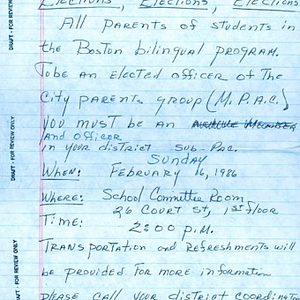 Elections, Elections, Elections
All parents of students in
the Boston bilingual program.
To be an elected officer of the
City parents group (M.P.A.C.)
you must be an
and officer
in your district sub-Pac.
Sunday
When: February 16, 1986
Where: School Committee Room
26 Court St, 1st floor
Time: 2:00 P.M.
Transportation and Refreshments will
be provided For more information
please call your district coordinator
DRAFT - FOR REVIEW ONLY
DRAFT - FOR REVIEW ONLY
DRAFT - FOR REVIEW ONLY